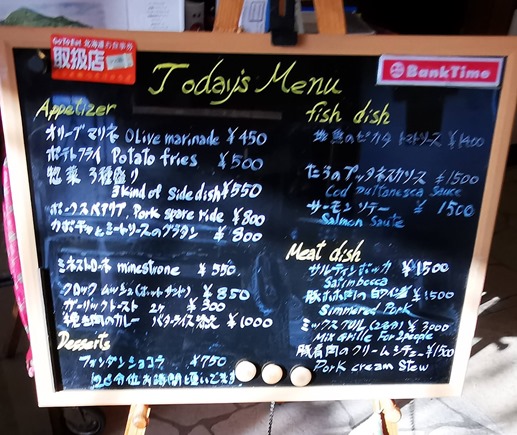 GoToEat 北海道お食事券
取扱店
BankTime
Today's Menu
Appetizer
オリーブマリネ Olive marinade ¥450
ポテトフライ Potato fries ¥500
惣菜 3種盛り
3 kind of Side dish ¥550
Pork spare ride ¥800
カボチャとミートソースのグラタン ¥800
ミネストローネ minestrone ¥550
クロックムッシュ(ホットサンド) ¥850
ガーリックトースト 2ヶ ¥300
挽き肉のカレー バターライス添え ¥1000
Desserts
フォンダンショコラ ¥750
fish dish
地魚のピカタ トマトソース ¥1400
たらのプッタネスカソース ¥1500
Cod Puttanesca Sauce
サーモンソテー ¥1500
Salmon Saute
Meat dish
サルティンボッカ ¥1500
Saltimbocca
豚ホホ肉の白ワイン煮 ¥1500
Simmered Pork
ミックスグリル (2名分) ¥3000
Mix Grille For 2 people
豚肩肉のクリームシチュー ¥1500
Pork cream Stew